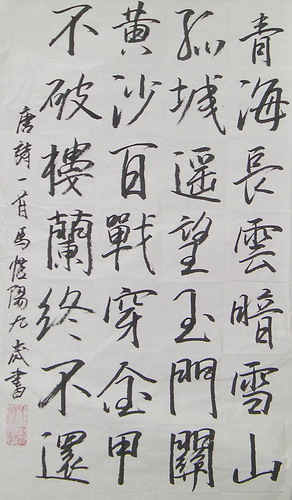 青海長雲暗雪山
孤城遥望玉門關
黄沙百戰穿金甲
不破樓蘭終不還
唐詩一首馬
書